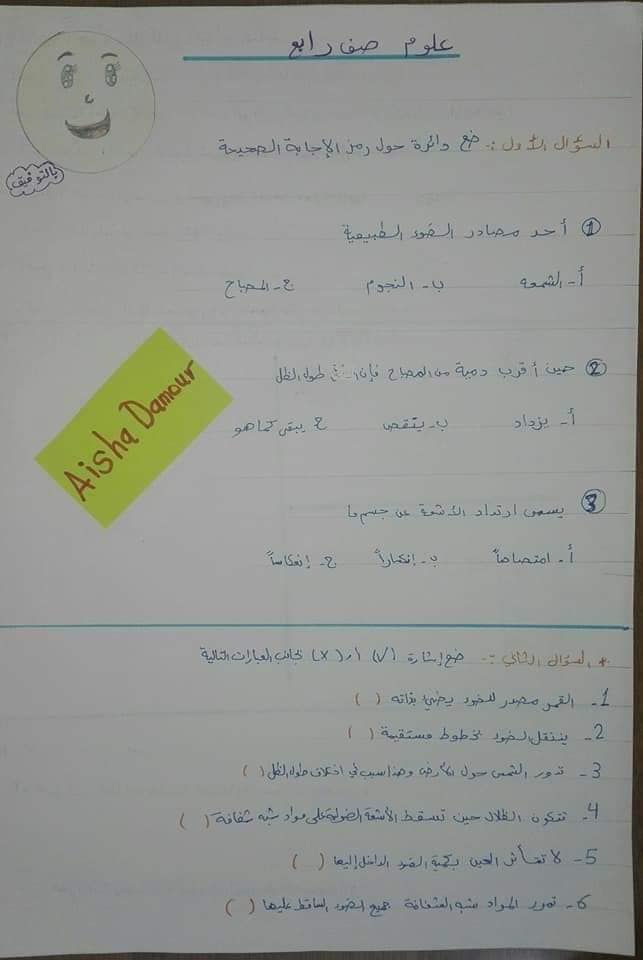 علوم صف رابع
بالتوفيق
السؤال الأول :. ضع دائرة حول رمز الإجابة الصحيحة
1 أحد مصادر الضوء الطبيعية
أ- الشمعه ب- النجوم ج- المصباح
2 حين أقرب دمية من المصباح فإن طول الظل
أ- يزداد ب- ينقص ج يبقى كما هو
Aisha Damour
3 يسمى ارتداد الأشعة عن جسم ما
أ- امتصاصاً ب- إنكساراً ج- إنعكاساً
* السؤال الثاني :. ضع إشارة (√) أو (x) بجانب العبارات التالية
1- القمر مصدر للضوء يضيئ بذاته ( )
2- ينتقل الضوء بخطوط مستقيمة ( )
3- تدور الشمس حول الأرض وهذا سبب في اختلاف طول الظل ( )
4- تتكون الظلال حين تسقط الأشعة الضوئية على مواد شبه شفافة ( )
5- لا تتأثر العين بكمية الضوء الداخل إليها ( )
6- تمرر المواد شبه الشفافة جميع الضوء الساقط عليها ( )